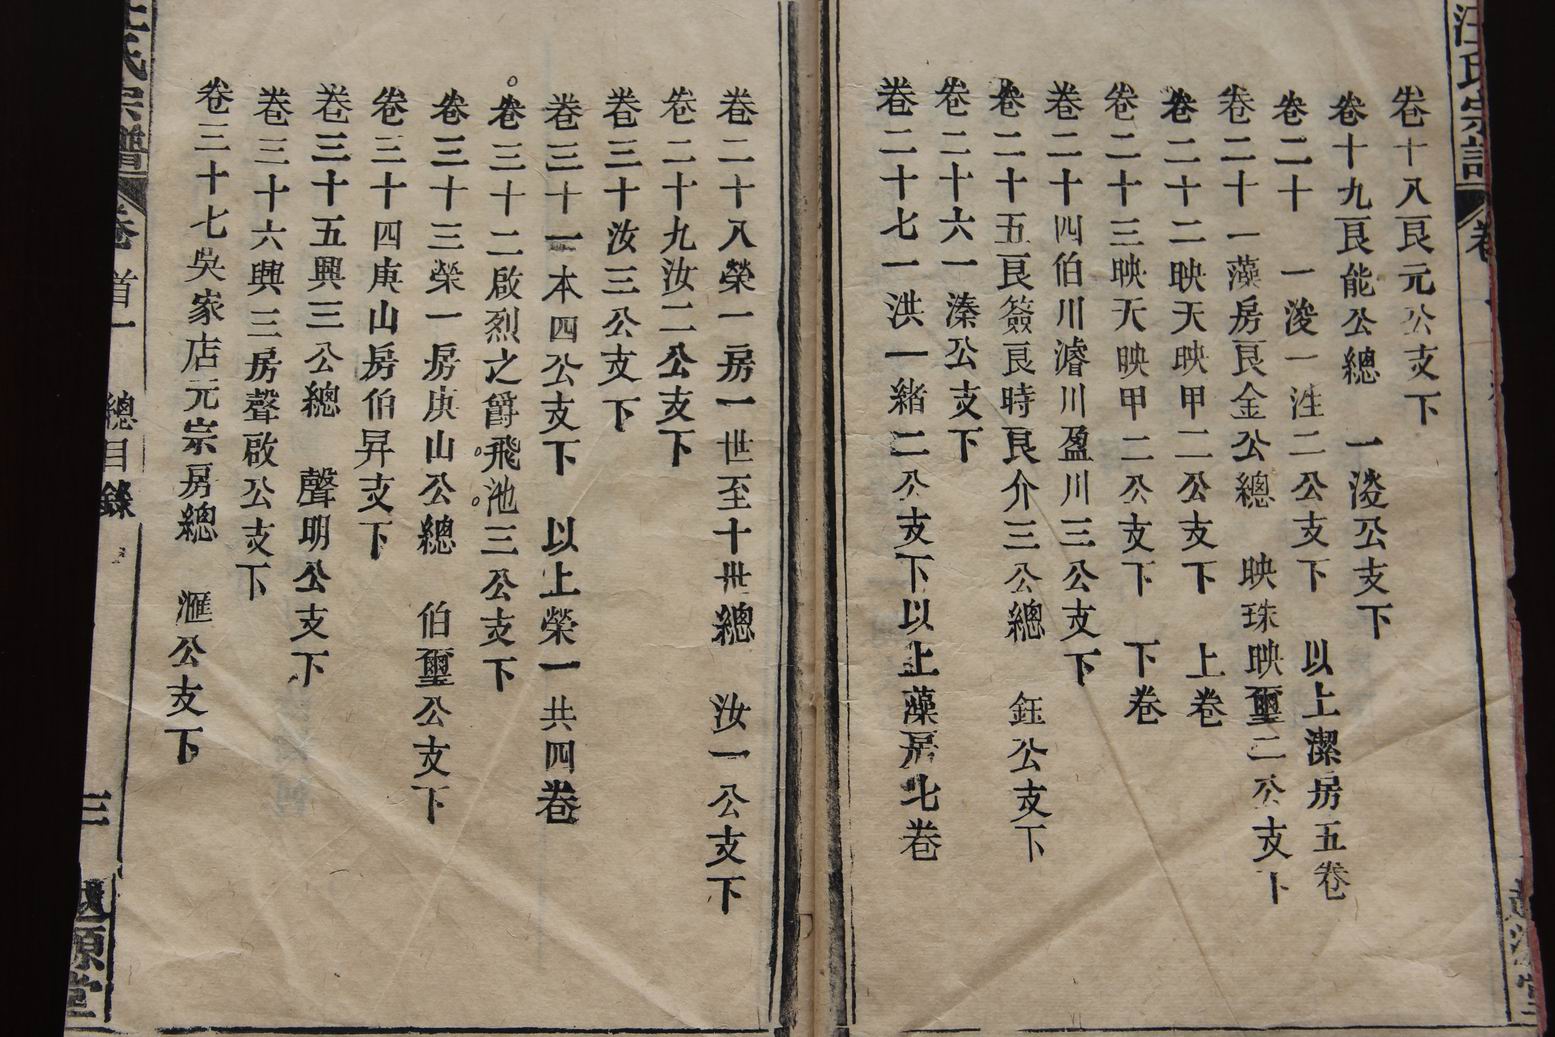 汪氏宗譜
卷十八艮元公支下
卷十九艮能公總 一淩公支下
卷二十 一浚一泩二公支下 以上潔房五卷
卷二十一藻房艮金公總 映珠映璽二公支下
卷二十二映天映甲二公支下 上卷
卷二十三映天映甲二公支下 下卷
卷二十四伯川濬川盈川三公支下
卷二十五艮簽艮時艮介三公總 鈺公支下
卷二十六一溱公支下
卷二十七一洪一緒二公支下以上藻房七卷
卷二十八榮一房一世至十世總 汝一公支下
卷二十九汝二公支下
卷三十汝三公支下
卷三十一本四公支下 以上榮一共四卷
卷三十二啟烈之爵飛池三公支下
卷三十三榮一房庚山公總 伯璽公支下
卷三十四庚山房伯昇支下
卷三十五興三公總 聲明公支下
卷三十六興三房聲啟公支下
卷三十七吳家店元崇房總 滙公支下
汪氏宗譜 卷首一 總目錄 三 越源堂